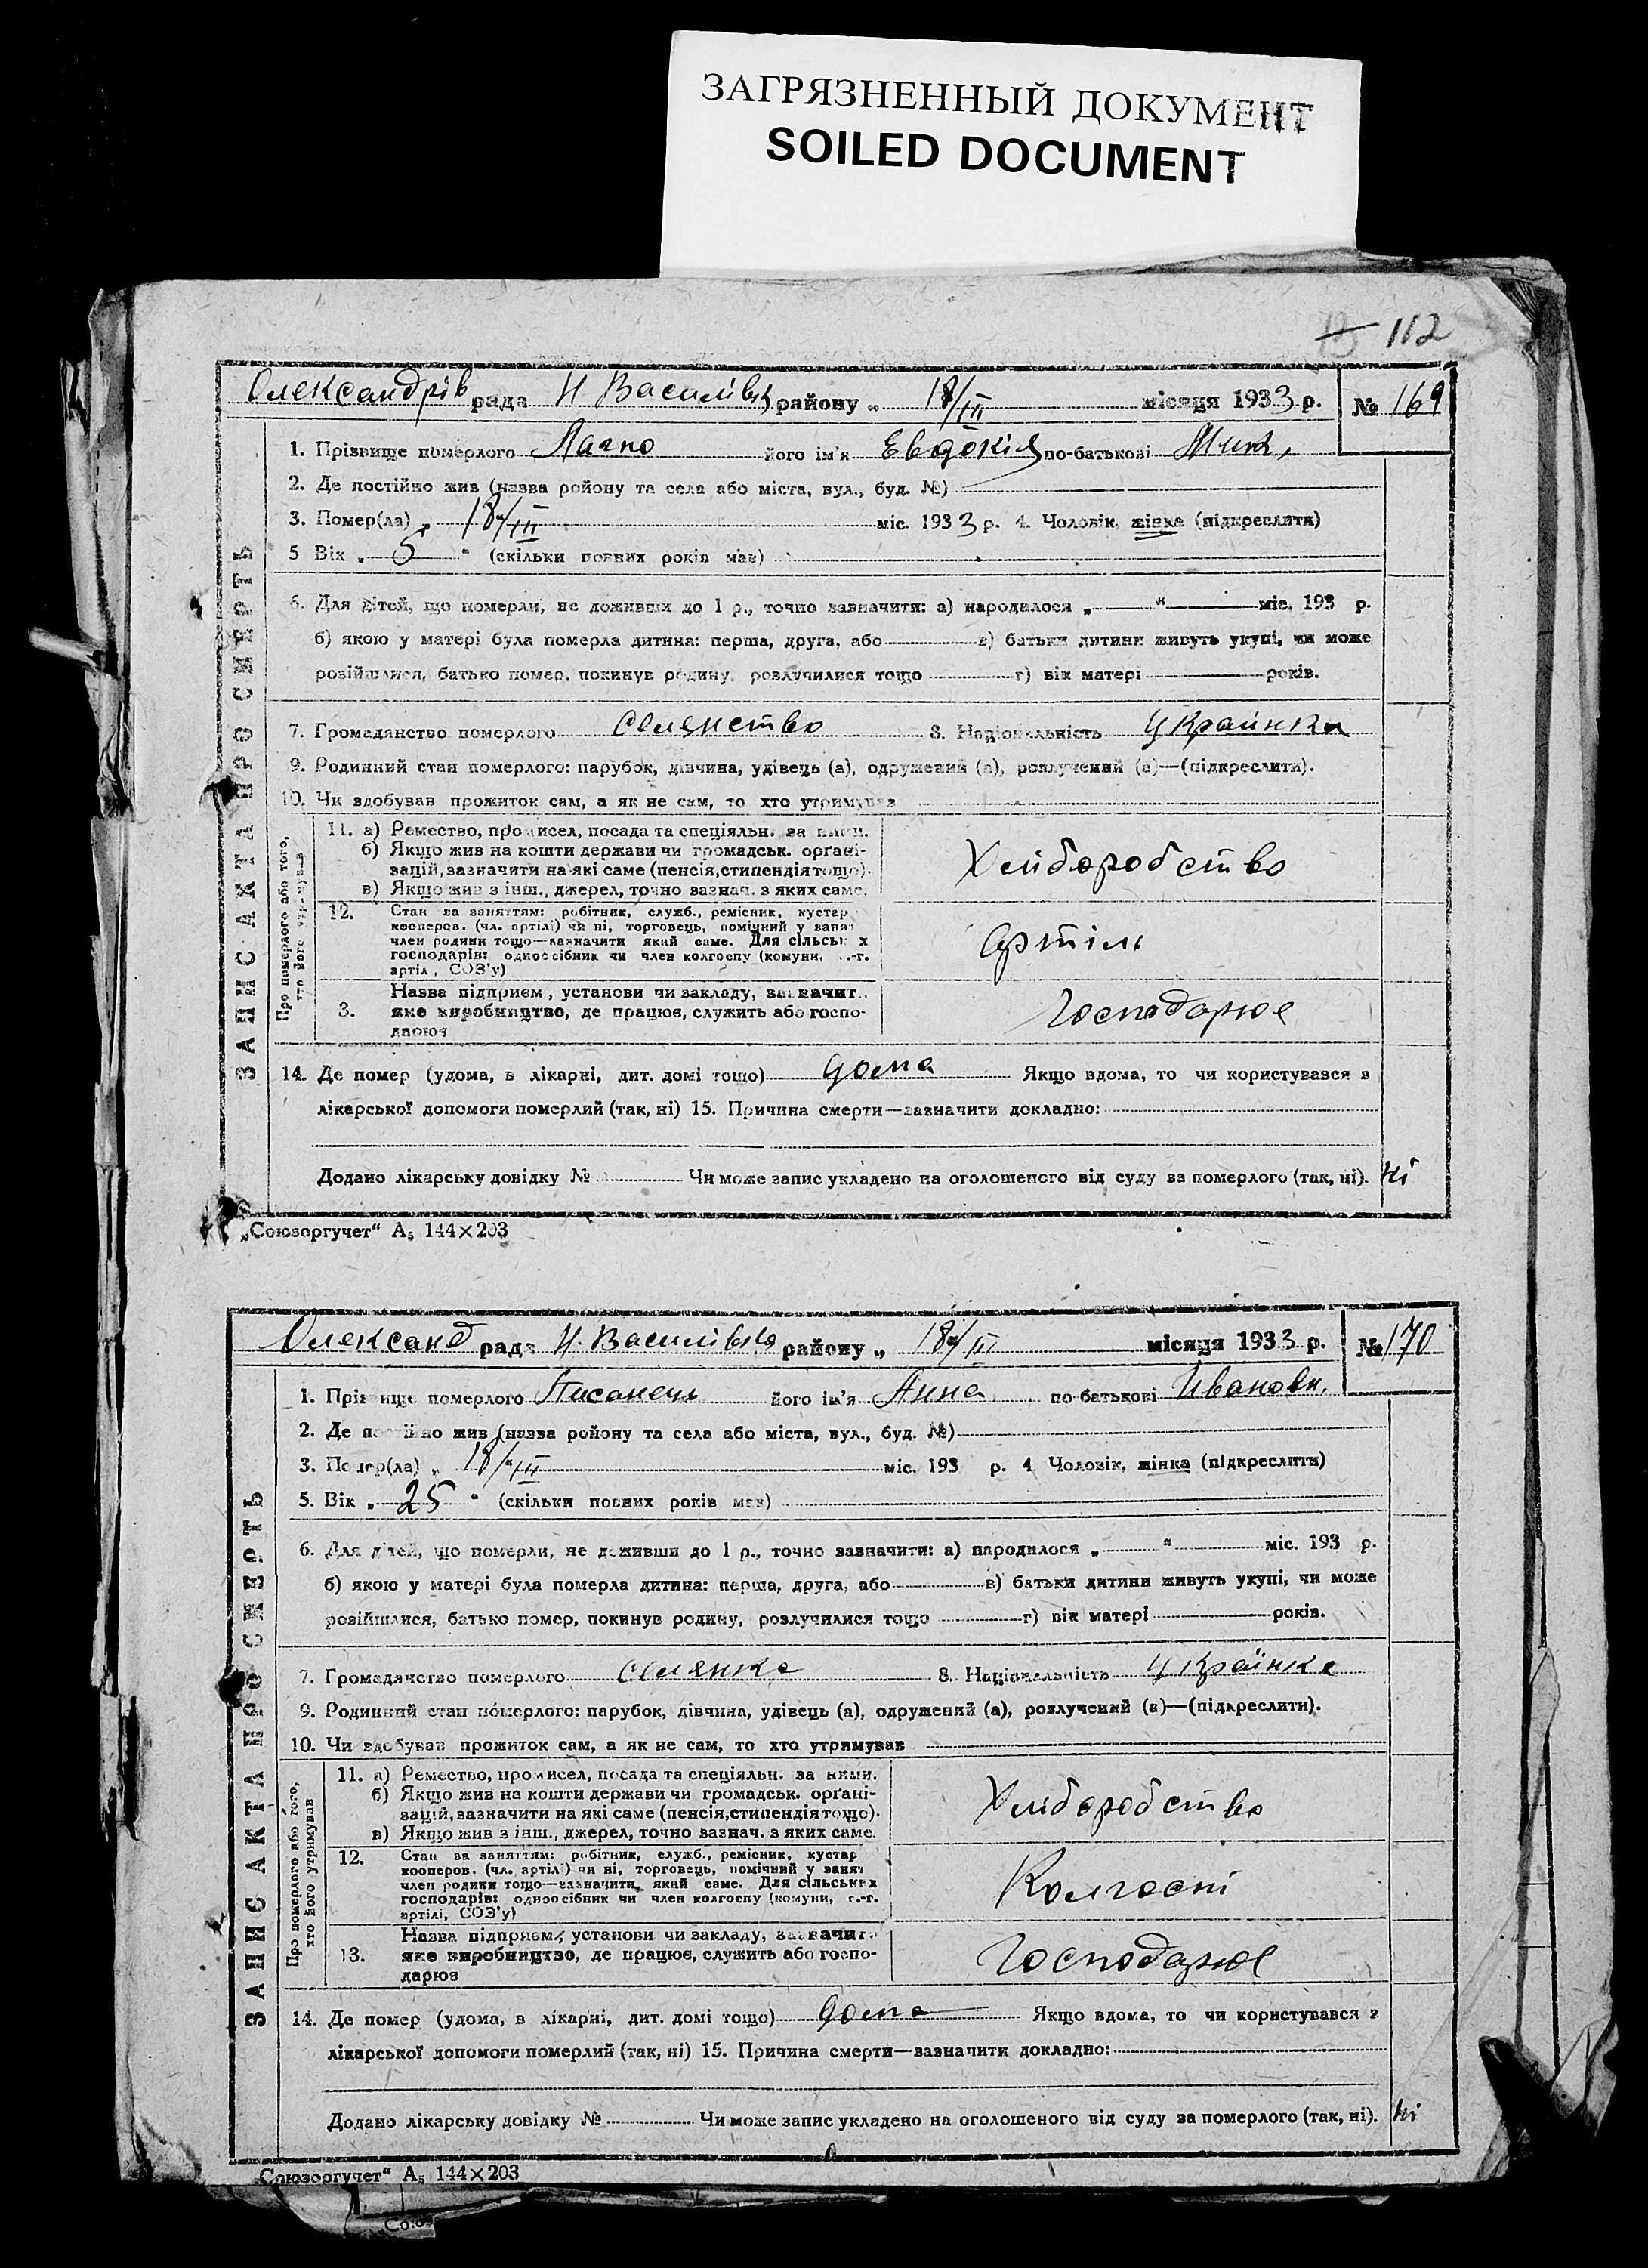 ЗАГРЯЗНЕННЫЙ ДОКУМЕНТ
SOILED DOCUMENT
112
Олександрів рада Н Василівк району „ 18/III місяця 1933 р. № 169
1. Прізвище померлого його ім'я Евдокія по-батькові Мик,
2. Де постійно жив (назва району та села або міста, вул., буд. №)
3. Помер(ла) „ 18/III міс. 1933 р. 4. Чоловік, жінка (підкреслити)
5 Вік „ 5 “ (скільки повних років мав)
6. Для дітей, що померли, не доживши до 1 р., точно зазначити: а) народилося „ “ міс. 193 р.
б) якою у матері була померла дитина: перша, друга, або в) батьки дитини живуть укупі, чи може
розійшлися, батько помер, покинув родину, розлучилися тощо г) вік матері років.
7. Громадянство померлого селянство 8. Національність Українка
9. Родинний стан померлого: парубок, дівчина, удівець (а), одружений (а), розлучений (а)—(підкреслити).
10. Чи здобував прожиток сам, а як не сам, то хто утримував
ЗАПИС АКТА ПРО СМЕРТЬ
Про померлого або того, хто його утримував
11. а) Ремество, промисел, посада та спеціяльн. за ними.
б) Якщо жив на кошти держави чи громадськ. органі-
зацій, зазначити на які саме (пенсія, стипендія тощо).
в) Якщо жив з інш., джерел, точно зазнач. з яких саме.
Хліборобство
12. Стан за заняттям: робітник, служб., ремісник, кустар
кооперов. (чл. артілі) чи ні, торговець, помічний у занят
член родини тощо—зазначити який саме. Для сільських
господарів: одноосібник чи член колгоспу (комуни, с.-г.
артілі, СОЗ'у)
Артіль
3. Назва підприєм, установи чи закладу, зазначит
яке виробництво, де працює, служить або госпо-
дарює
Господарює
14. Де помер (удома, в лікарні, дит. домі тощо) дома Якщо вдома, то чи користувався з
лікарської допомоги померлий (так, ні) 15. Причина смерти—зазначити докладно:
Додано лікарську довідку № Чи може запис укладено на оголошеного від суду за померлого (так, ні). ні
„Союзоргучет“ А5 144×203
Олександ рада Н. Василівка району „ 18/III місяця 1933 р. № 170
1. Прізвище померлого Писанець його ім'я Анна по-батькові Івановн.
2. Де постійно жив (назва району та села або міста, вул., буд. №)
3. Помер(ла) „ 18/III міс. 193 р. 4 Чоловік, жінка (підкреслити)
5. Вік „ 25 “ (скільки повних років мав)
6. Для дітей, що померли, не доживши до 1 р., точно зазначити: а) народилося „ “ міс. 193 р.
б) якою у матері була померла дитина: перша, друга, або в) батьки дитини живуть укупі, чи може
розійшлися, батько помер, покинув родину, розлучилися тощо г) вік матері років.
7. Громадянство померлого селянка 8. Національність Українка
9. Родинний стан померлого: парубок, дівчина, удівець (а), одружений (а), розлучений (а)—(підкреслити).
10. Чи здобував прожиток сам, а як не сам, то хто утримував
ЗАПИС АКТА ПРО СМЕРТЬ
Про померлого або того, хто його утримував
11. а) Ремество, промисел, посада та спеціяльн. за ними.
б) Якщо жив на кошти держави чи громадськ. органі-
зацій, зазначити на які саме (пенсія, стипендія тощо).
в) Якщо жив з інш., джерел, точно зазнач. з яких саме.
Хліборобство
12. Стан за заняттям: робітник, служб., ремісник, кустар
кооперов. (чл. артілі) чи ні, торговець, помічний у занят
член родини тощо—зазначити який саме. Для сільських
господарів: одноосібник чи член колгоспу (комуни, с.-г.
артілі, СОЗ'у)
Колгоспі
13. Назва підприєм, установи чи закладу, зазначит
яке виробництво, де працює, служить або госпо-
дарює
Господарює
14. Де помер (удома, в лікарні, дит. домі тощо) дома Якщо вдома, то чи користувався з
лікарської допомоги померлий (так, ні) 15. Причина смерти—зазначити докладно:
Додано лікарську довідку № Чи може запис укладено на оголошеного від суду за померлого (так, ні). ні
„Союзоргучет“ А5 144×203